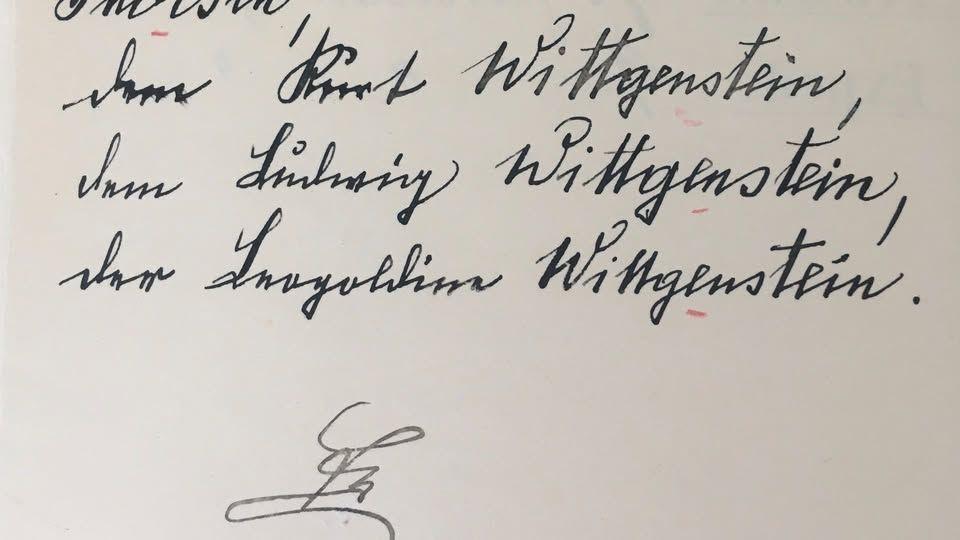 dem Kurt Wittgenstein,
dem Ludwig Wittgenstein,
der Leopoldine Wittgenstein.